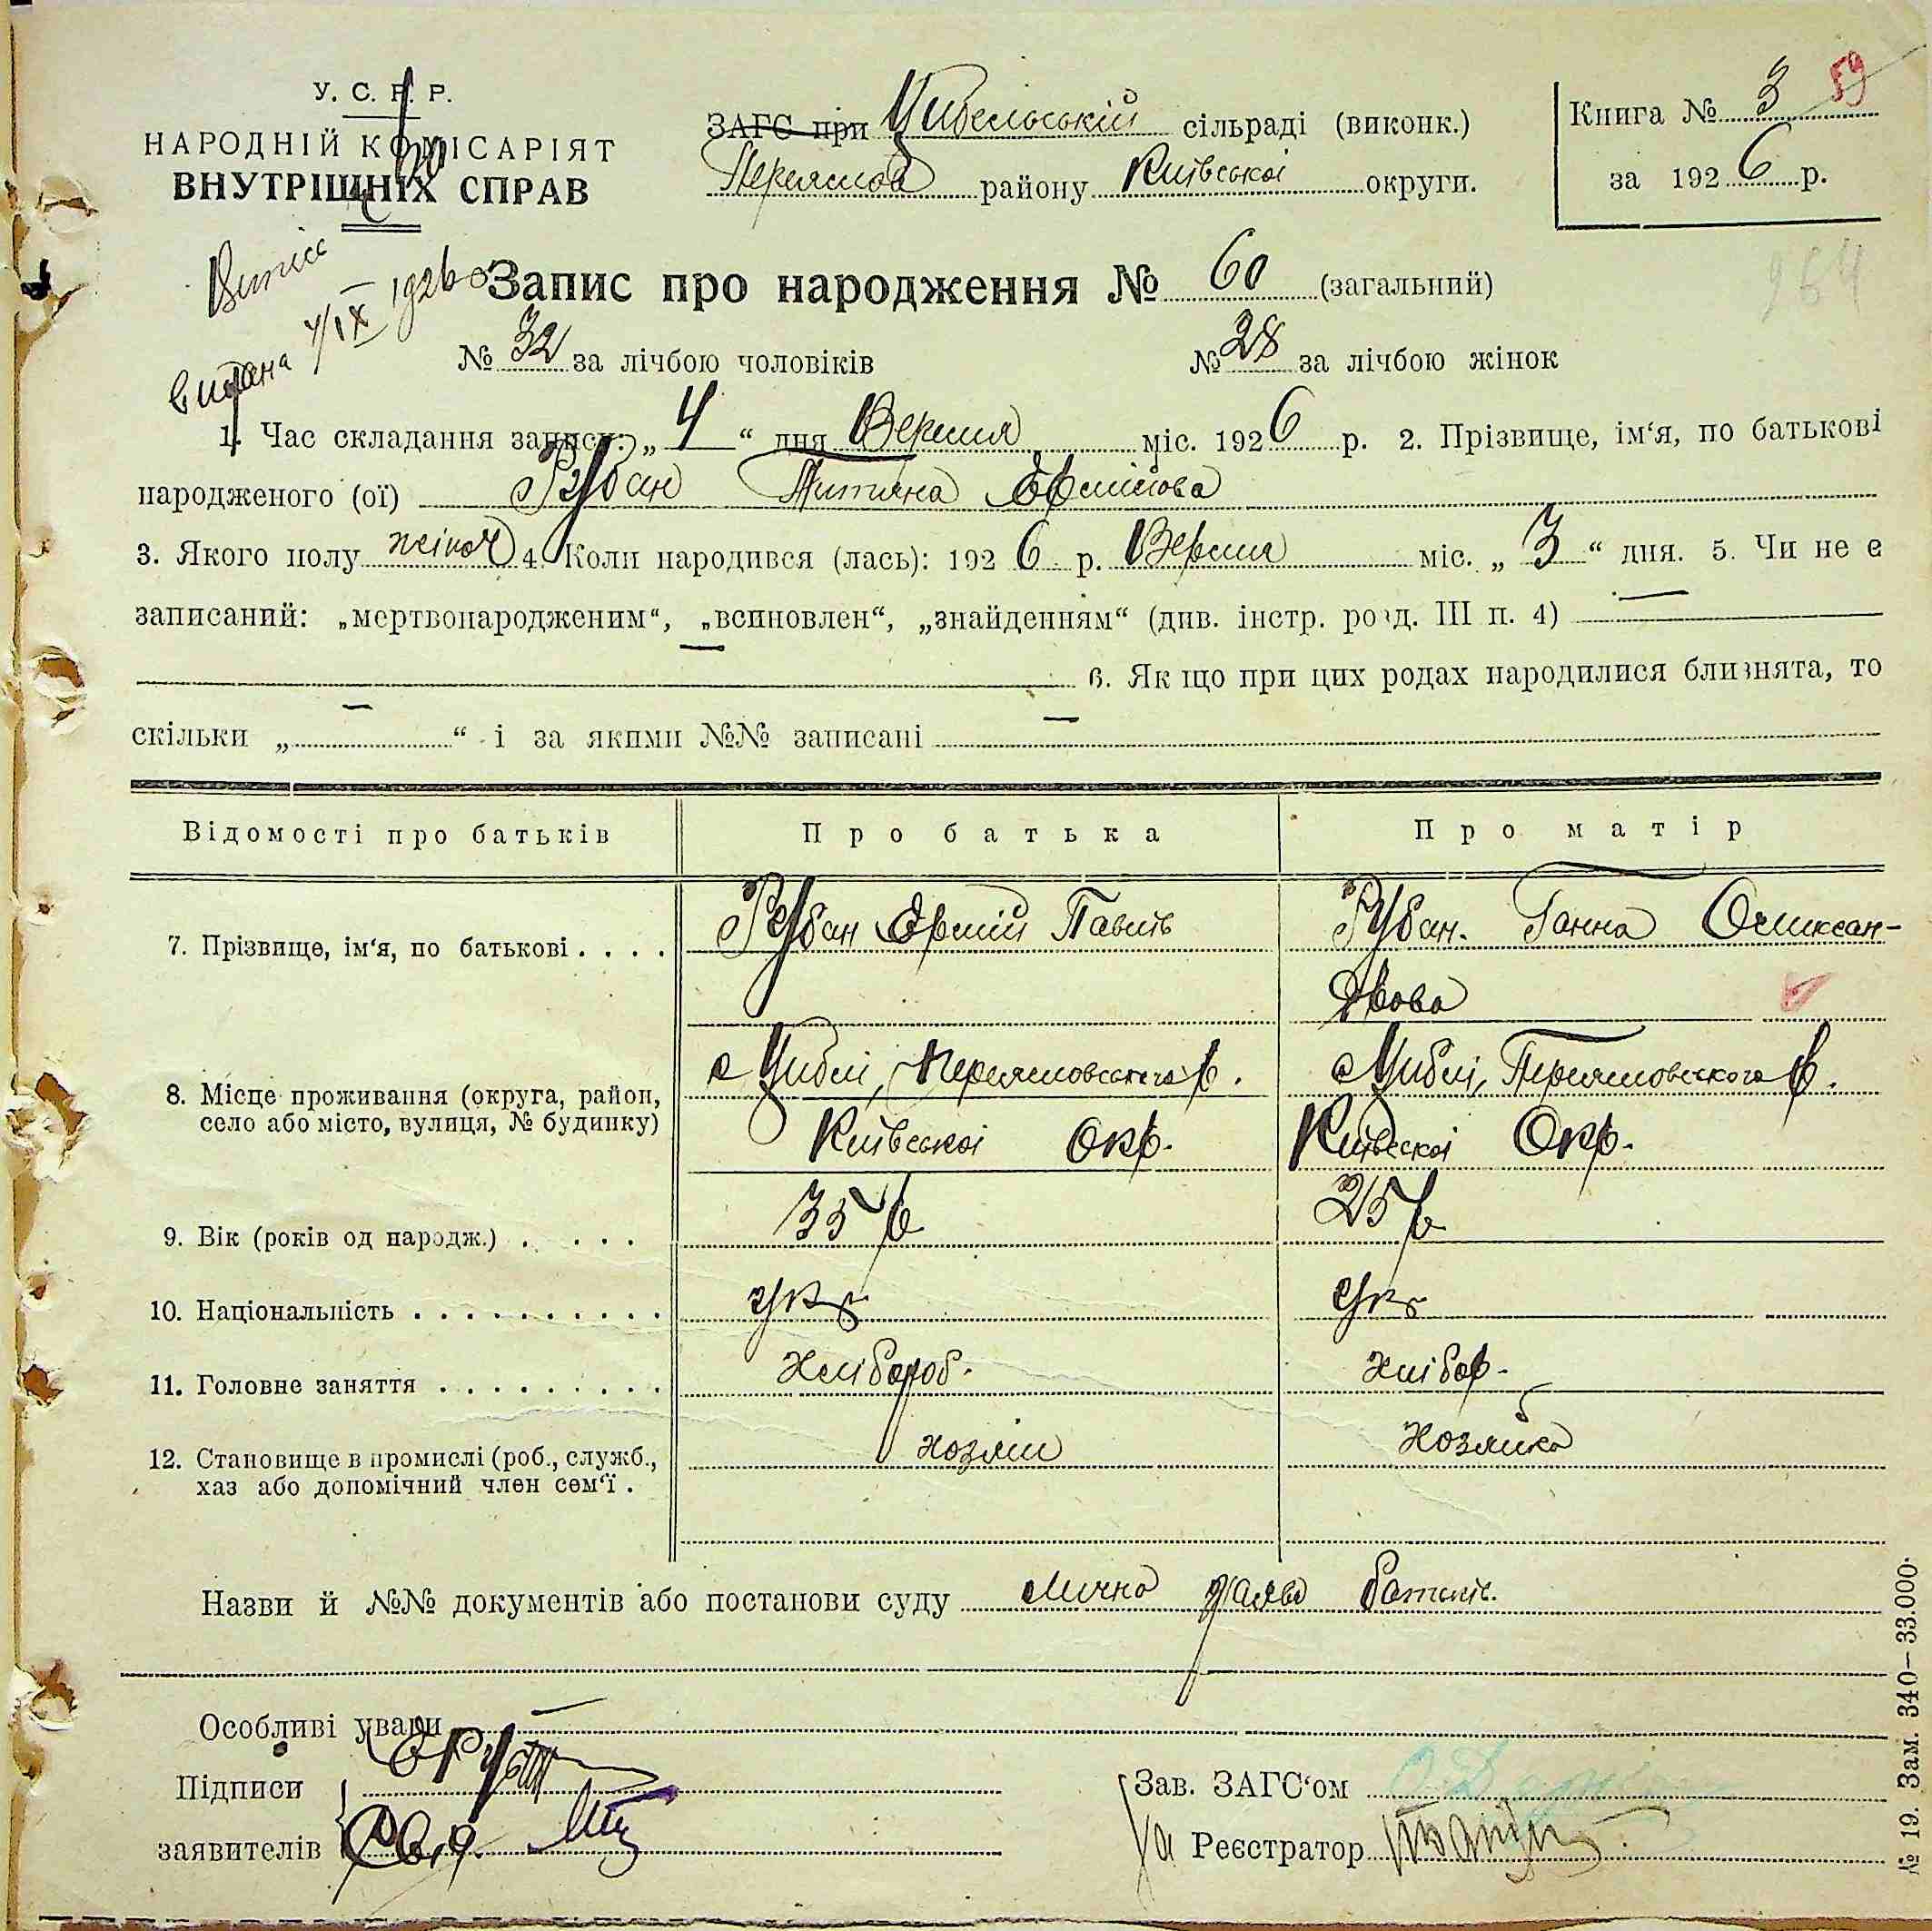 У. С. Р. Р.
НАРОДНІЙ КОМІСАРІЯТ
ВНУТРІШНІХ СПРАВ
ЗАГС при Цибельській сільраді (виконк.)
Переяслов району Київської округи.
Книга № 3 59
за 1926 р.
264
Витис
видана 4/IX 1926
Запис про народження № 60 (загальний)
№ 32 за лічбою чоловіків № 28 за лічбою жінок
1. Час складання запису: „4“ дня Вересня міс. 1926 р. 2. Прізвище, ім‘я, по батькові
народженого (ої) Рубан Титяна Єфремова
3. Якого полу жіноч 4. Коли народився (лась): 1926 р. Вересня міс. „3“ дня. 5. Чи не є
записаний: „мертвонародженим“, „всиновлен“, „знайденням“ (див. інстр. розд. III п. 4) —
6. Якщо при цих родах народилися близнята, то
скільки „ — “ і за якими №№ записані —
Відомості про батьків Про батька Про матір
7. Прізвище, ім‘я, по батькові . . . . Рубан Павлів Рубан. Ганна Оликсан-
дрова
8. Місце проживання (округа, район, село або місто, вулиця, № будинку) с Циблі, Переясловського р. с Циблі, Переясловского р.
Київської Окр. Київскої Окр.
9. Вік (років од народж.) . . . . . 35 р 25 р
10. Національність . . . . . . . . . . укр укр
11. Головне заняття . . . . . . . . . Хлібороб. хлібор.
12. Становище в промислі (роб., служб., хаз або допомічний член сем‘ї . хозяін хозяйка
Назви й №№ документів або постанови суду Лична заява батьків.
Особливі уваги —
Підписи
заявителів
Зав. ЗАГС‘ом
Реєстратор
№ 19. Зам. 340—33.000.